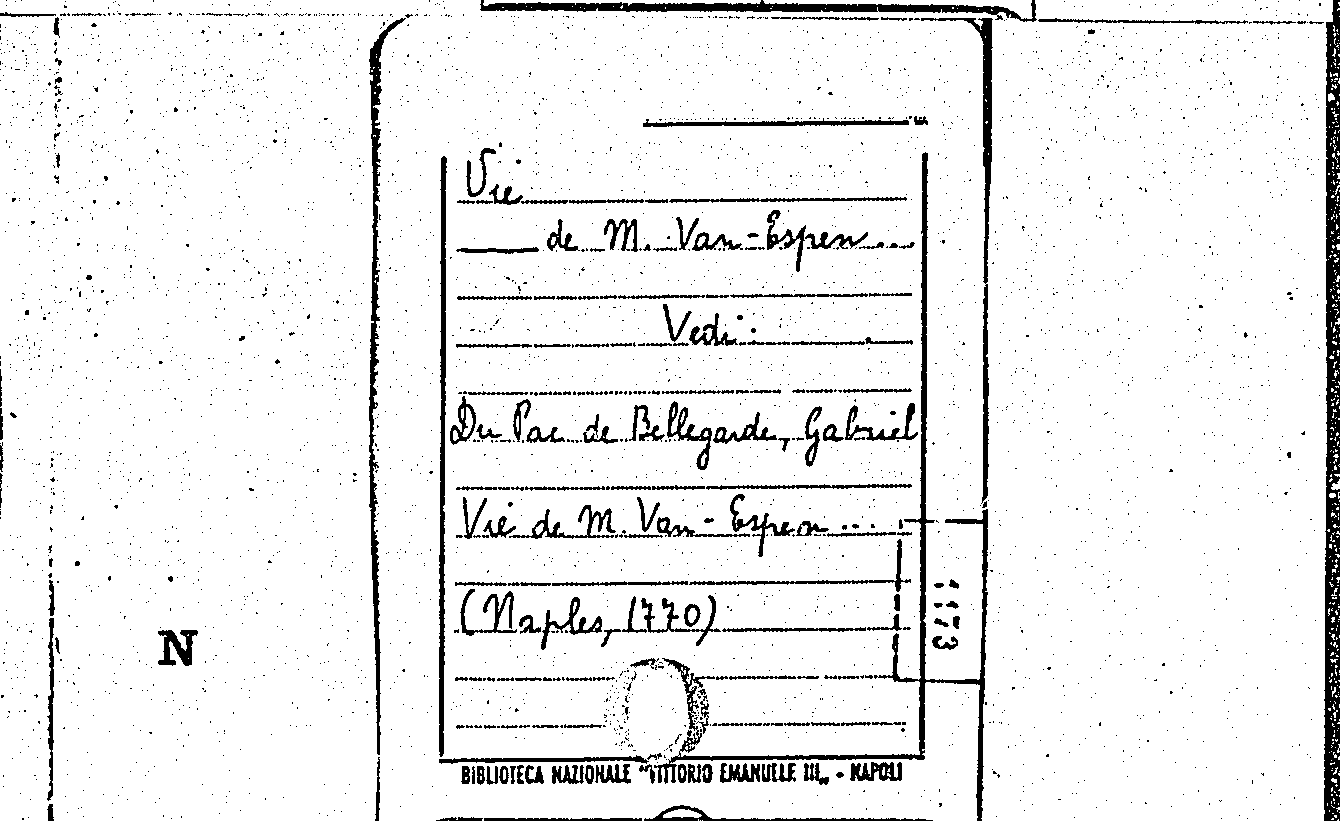 Vie
de M. Van-Espen...
Vedi:
Du Pac de Bellegarde, Gabriel
Vie de M. Van-Espen...
(Naples, 1770)
1173
N
BIBLIOTECA NAZIONALE "VITTORIO EMANUELE III„ - NAPOLI